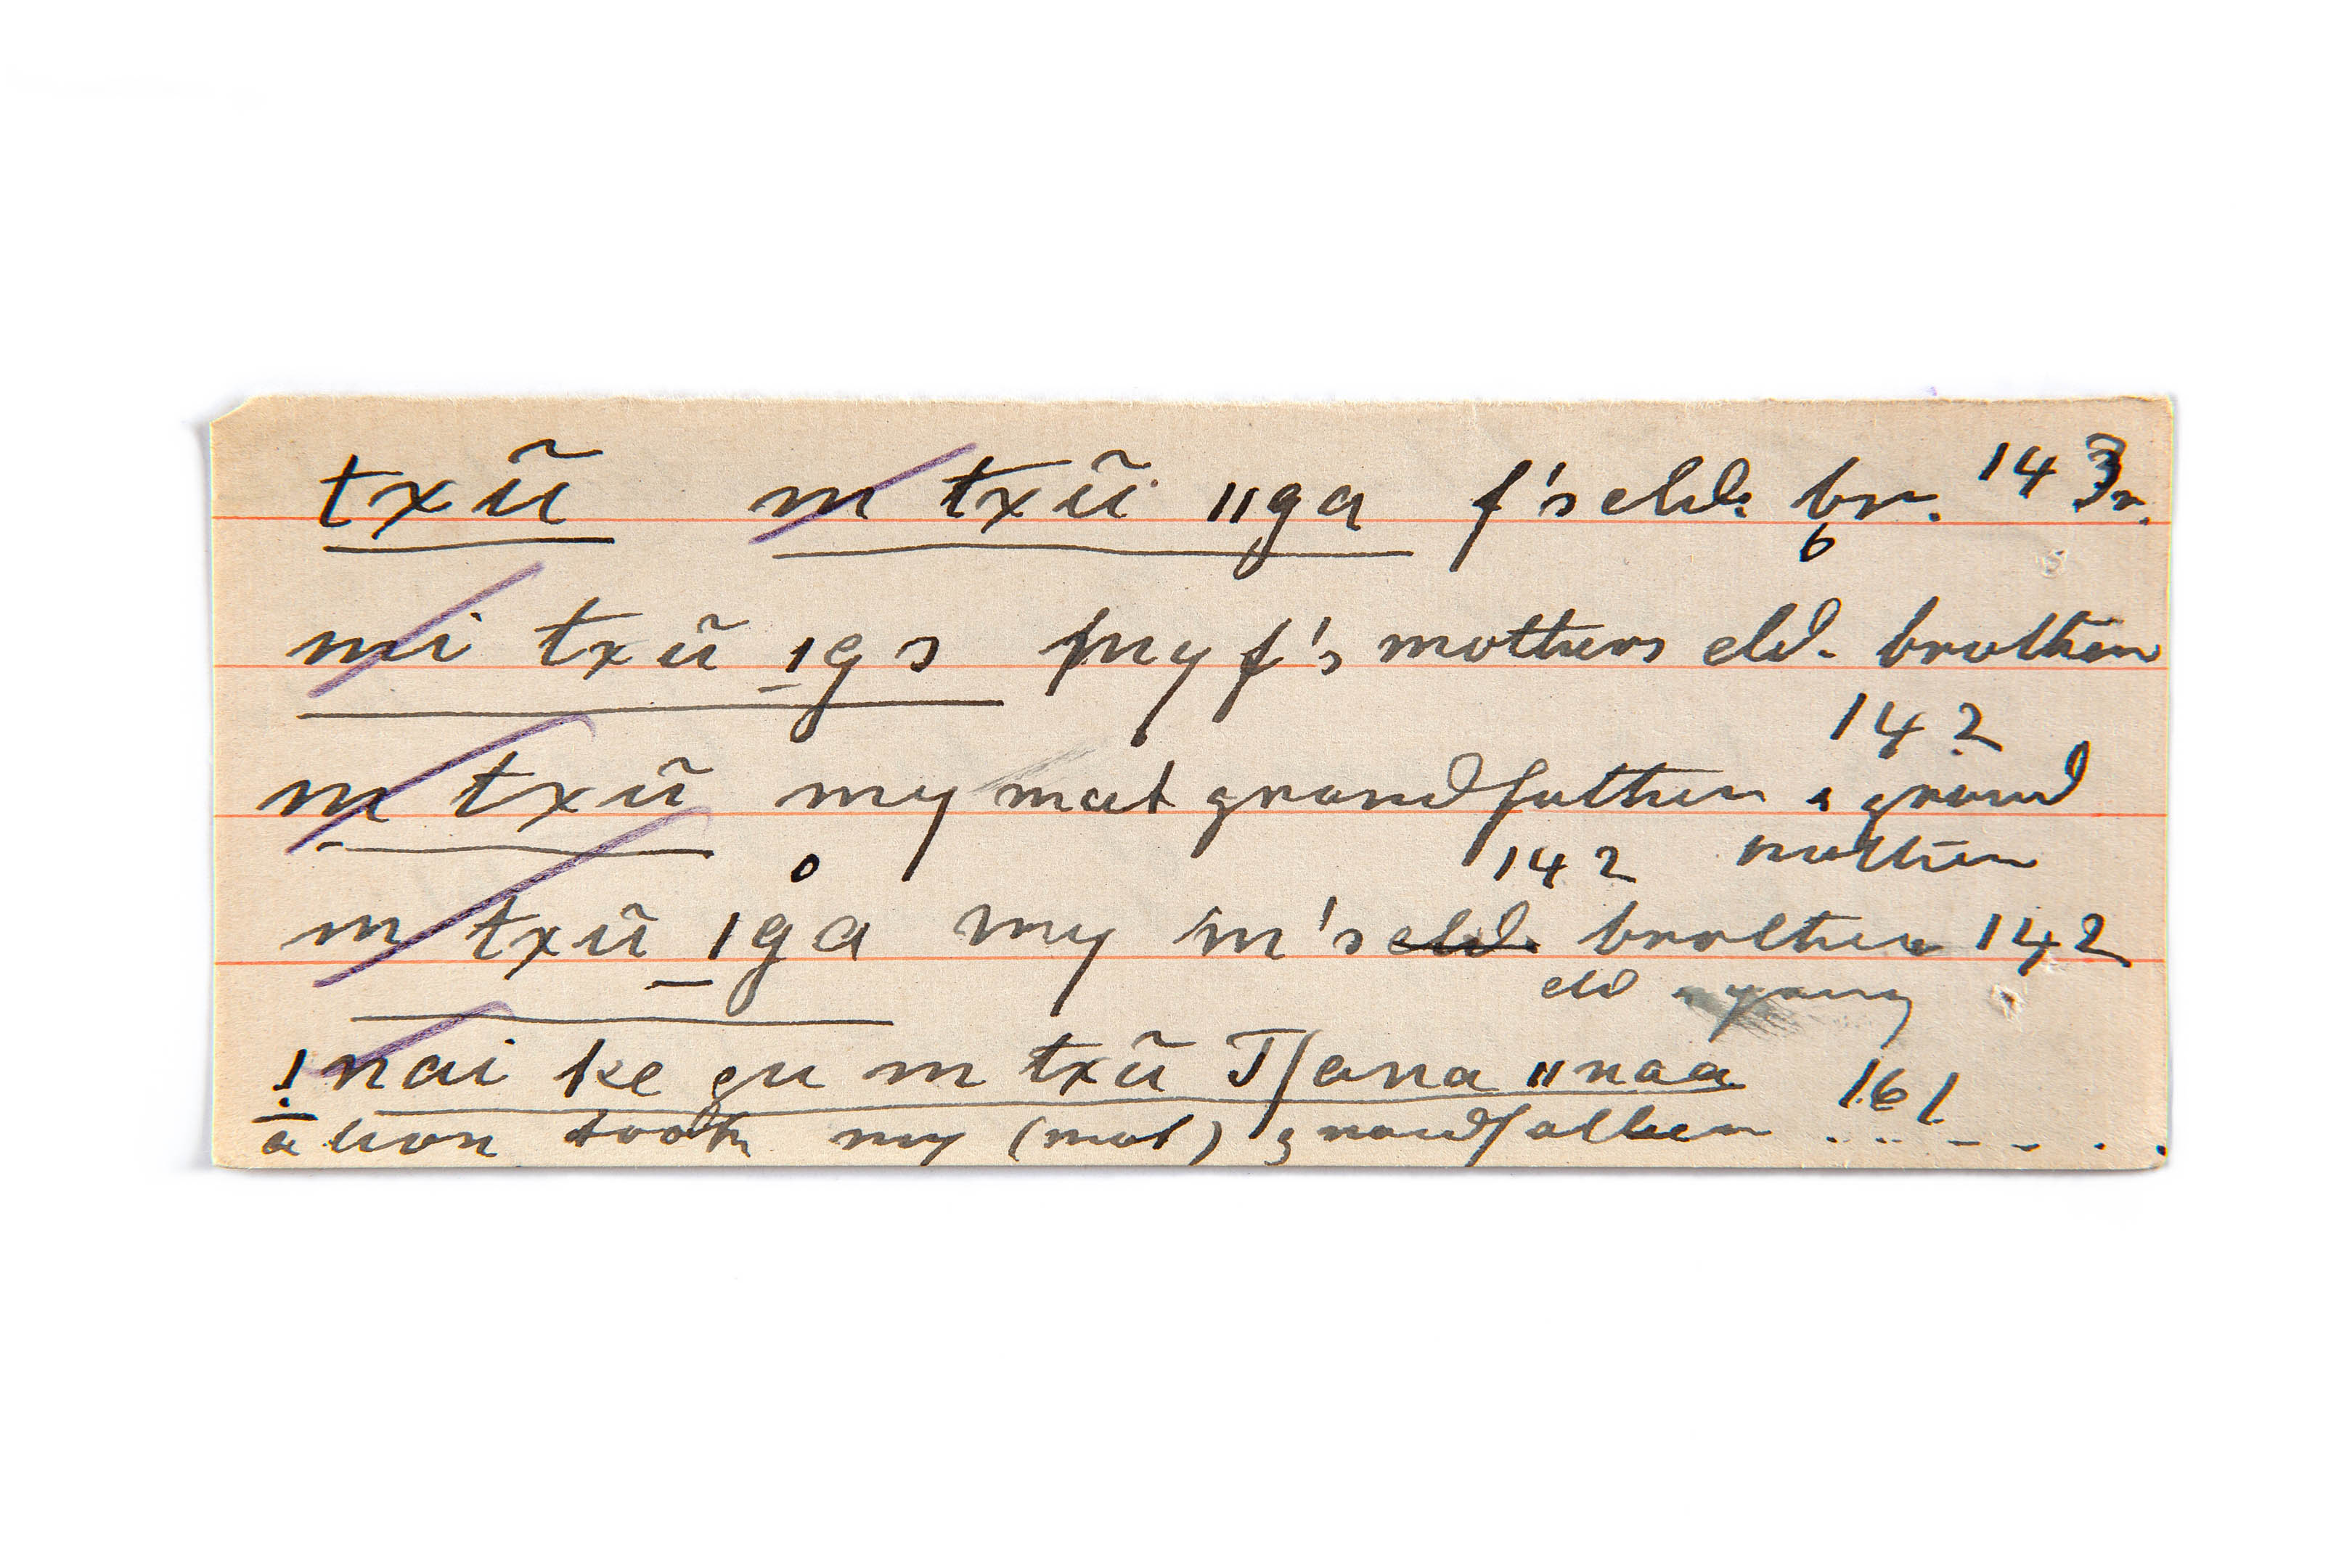 txũ m txũ ǁga f's eld. br. 143
6
mi txũ ǀgɔ my f's mothers eld. brother
142
m txũ my mat grandfather & grand
142 mother
m txũ ǀga my m's eld. brother 142
eld young
!nai ke gu m txũ Tʃana ǁnaa 161
a lion took my (mat) grandfather .. .. - - . .